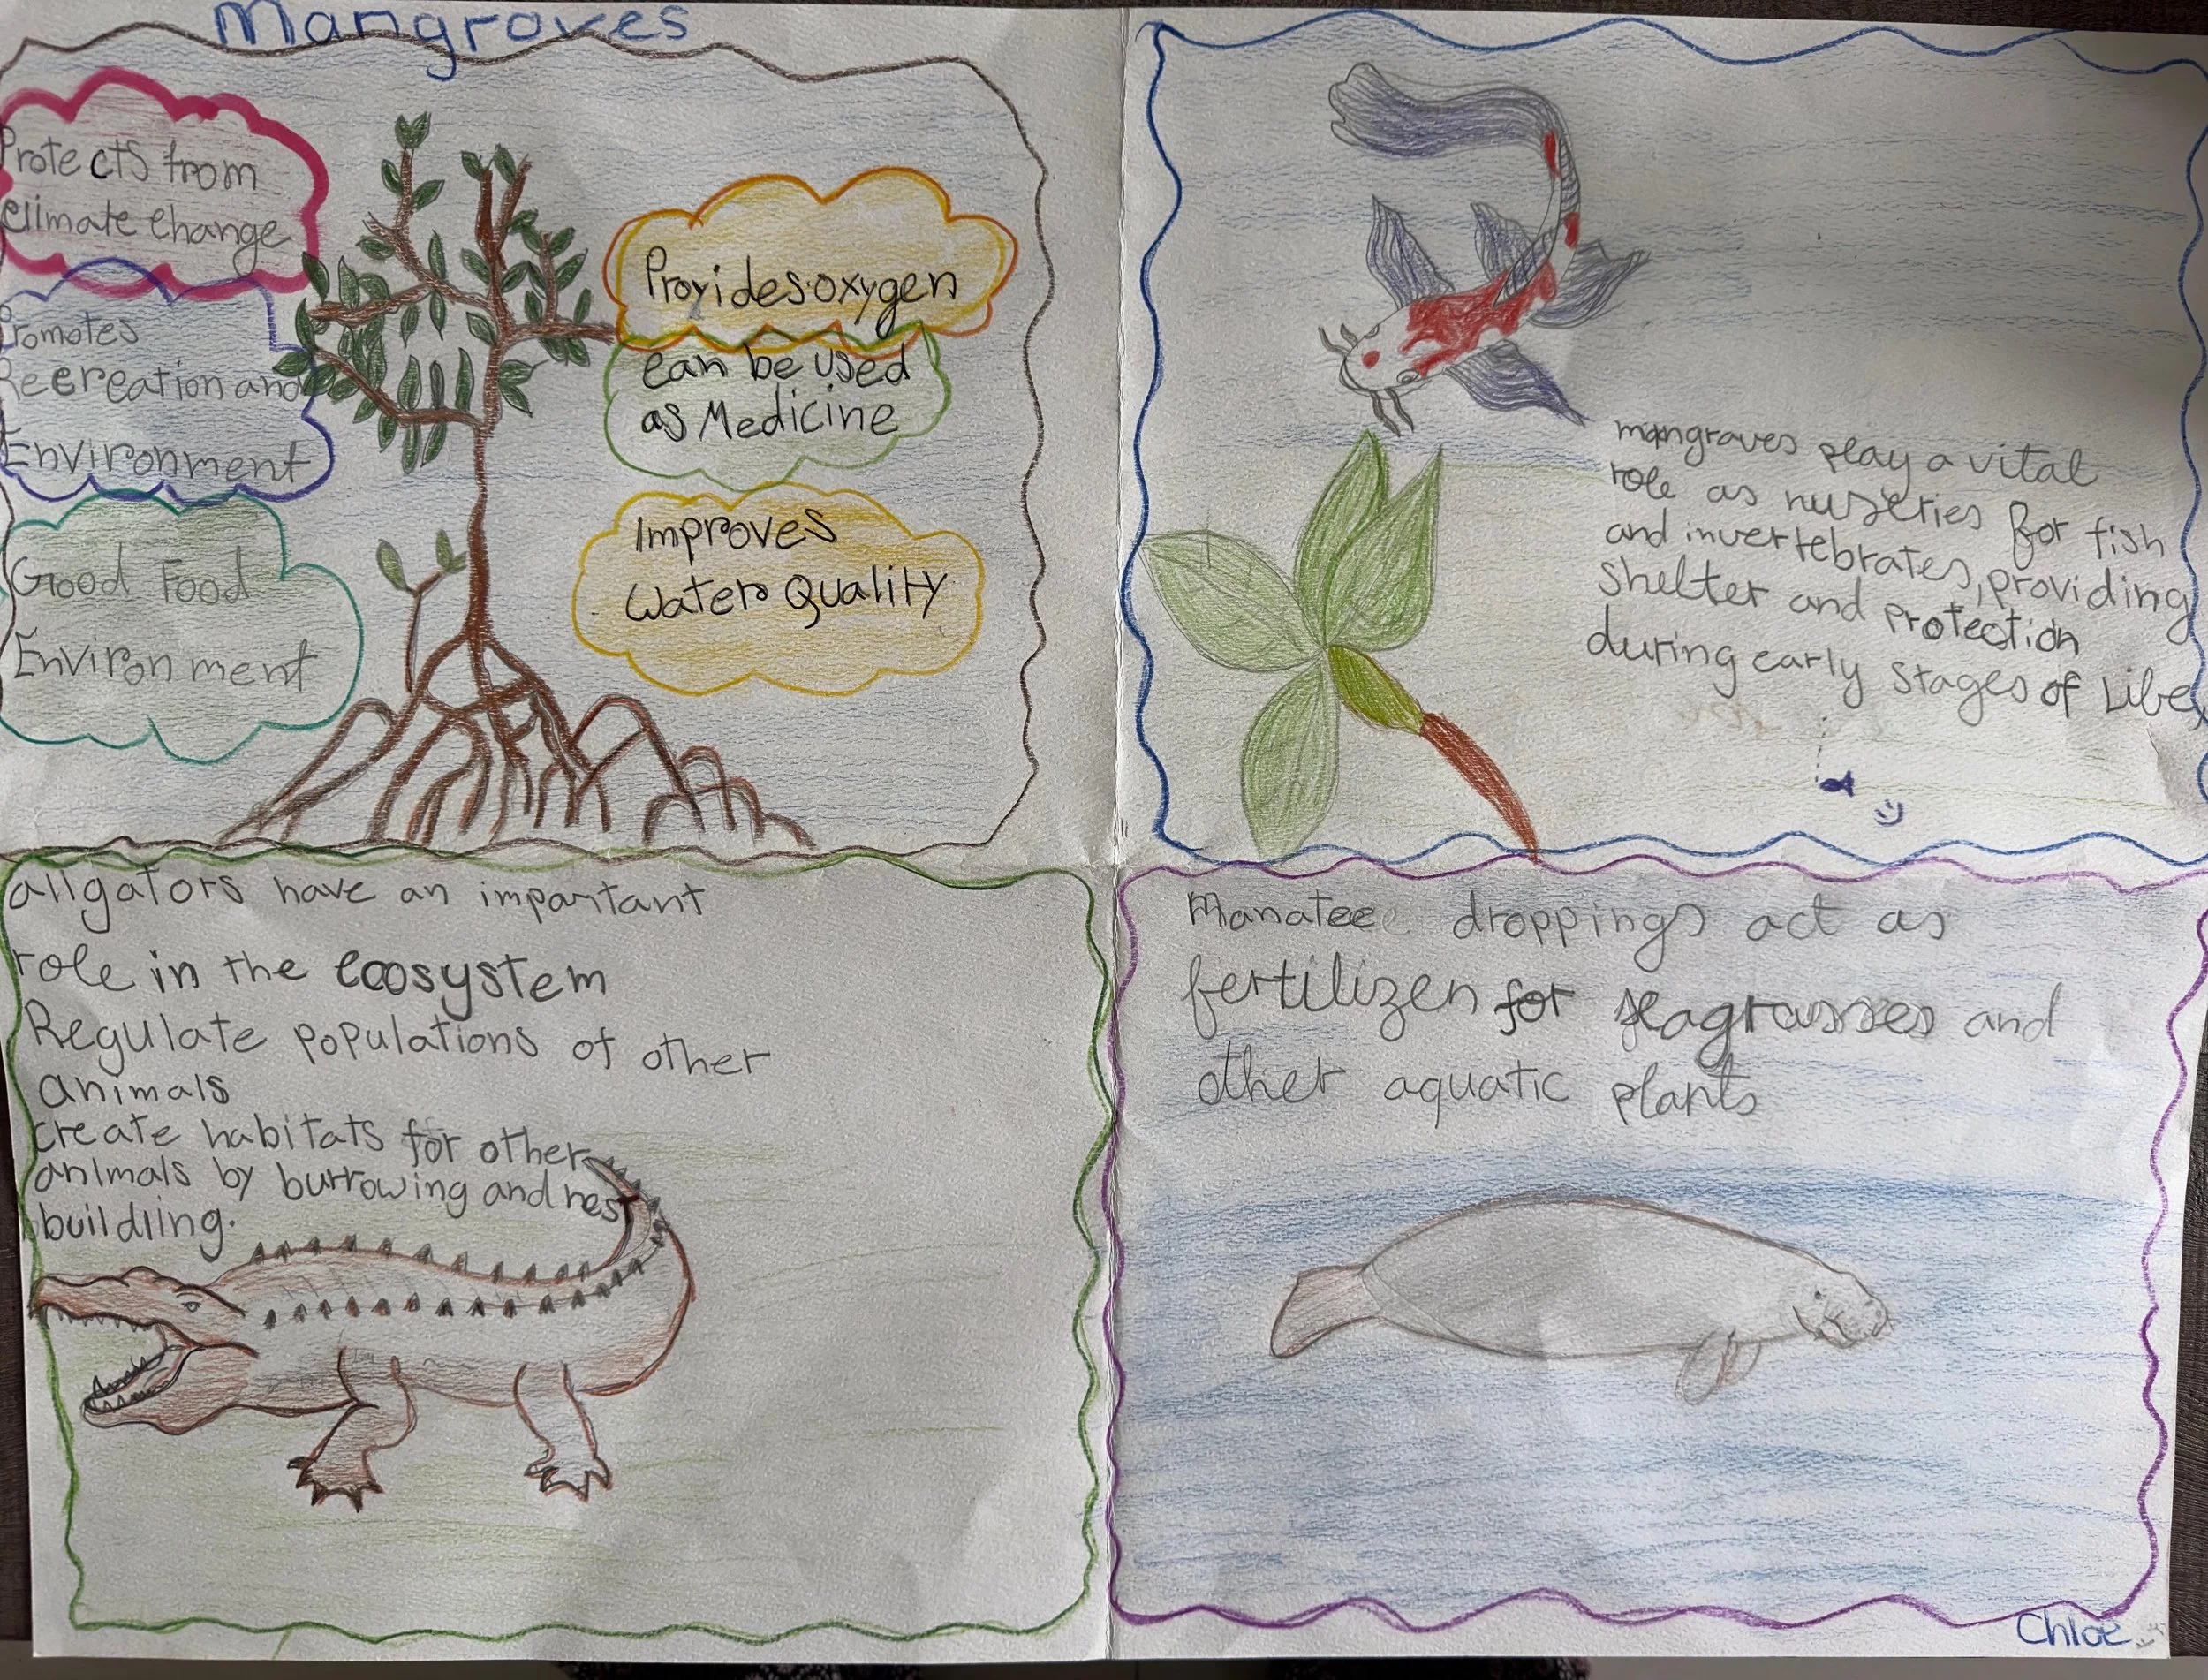 Mangroves
Protects from
climate change
Promotes
Recreation and
Environment
Good Food
Environment
Provides oxygen
can be used
as Medicine
Improves
Water Quality
mangraves play a vital
role as nurseries for fish
and invertebrates, providing
shelter and protection
during early stages of Life
alligators have an important
role in the ecosystem
Regulate populations of other
animals
create habitats for other
animals by burrowing and nest
building.
Manatee droppings act as
fertilizen for seagrasses and
other aquatic plants
Chloe